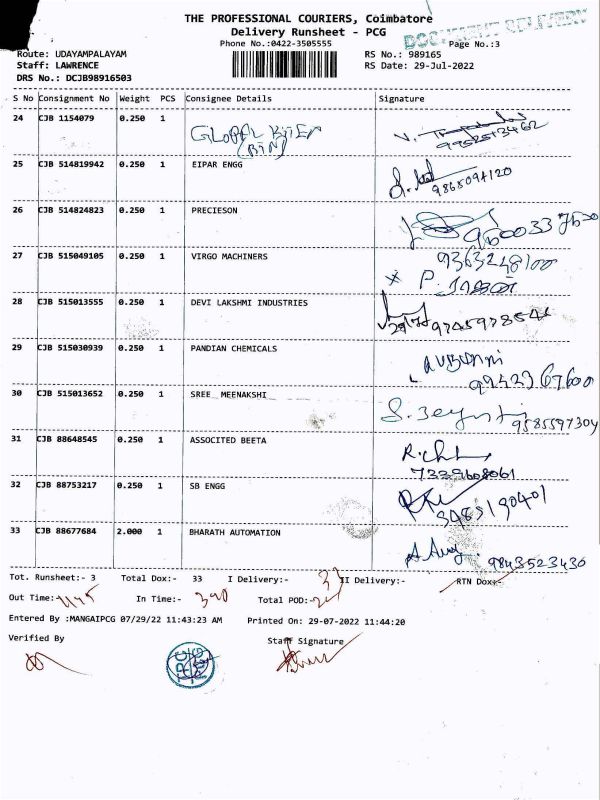 THE PROFESSIONAL COURIERS, Coimbatore
DOCUMENT DELIVERY
Delivery Runsheet - PCG
Phone No.:0422-3505555
Page No.:3
Route: UDAYAMPALAYAM
RS No.: 989165
Staff: LAWRENCE
RS Date: 29-Jul-2022
DRS No.: DCJB98916503
S No Consignment No Weight PCS Consignee Details Signature
24 CJB 1154079 0.250 1
25 CJB 514819942 0.250 1 EIPAR ENGG
9865094120
26 CJB 514824823 0.250 1 PRECIESON
27 CJB 515049105 0.250 1 VIRGO MACHINERS 9363248100
28 CJB 515013555 0.250 1 DEVI LAKSHMI INDUSTRIES
9745978541
29 CJB 515030939 0.250 1 PANDIAN CHEMICALS
9942367600
30 CJB 515013652 0.250 1 SREE MEENAKSHI
9585597304
31 CJB 88648545 0.250 1 ASSOCITED BEETA
7339608061
32 CJB 88753217 0.250 1 SB ENGG
33 CJB 88677684 2.000 1 BHARATH AUTOMATION
9843523430
Tot. Runsheet:- 3 Total Dox:- 33 I Delivery:- II Delivery:- RTN Dox:-
Out Time: In Time:- Total POD:-
Entered By :MANGAIPCG 07/29/22 11:43:23 AM Printed On: 29-07-2022 11:44:20
Verified By Staff Signature